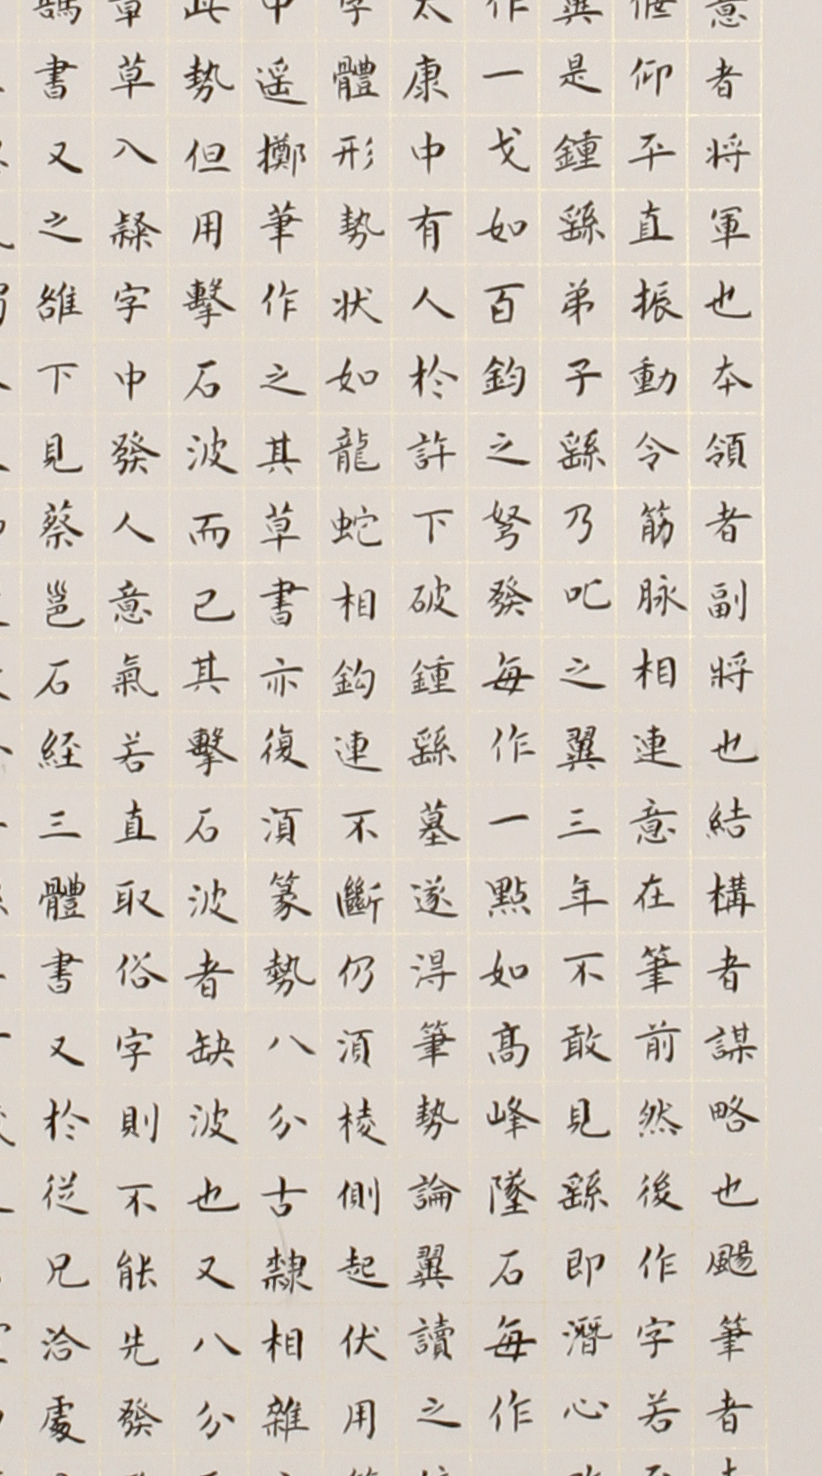 意者将軍也本領者副将也結構者謀略也颺筆者
偃仰平直振動令筋脉相連意在筆前然後作字若
翼是鍾繇弟子繇乃叱之翼三年不敢見繇即潛心
作一戈如百鈞之弩發每作一點如高峰墜石每作
太康中有人於許下破鍾繇墓遂得筆勢論翼讀之
字體形勢状如龍蛇相鈎連不斷仍湏棱側起伏用
中遥擲筆作之其草書亦復湏篆勢八分古隸相雜
此勢但用擊石波而已其擊石波者缺波也又八分
章草入隸字中發人意氣若直取俗字則不能先發
鵠書又之雒下見蔡邕石経三體書又於従兄洽處